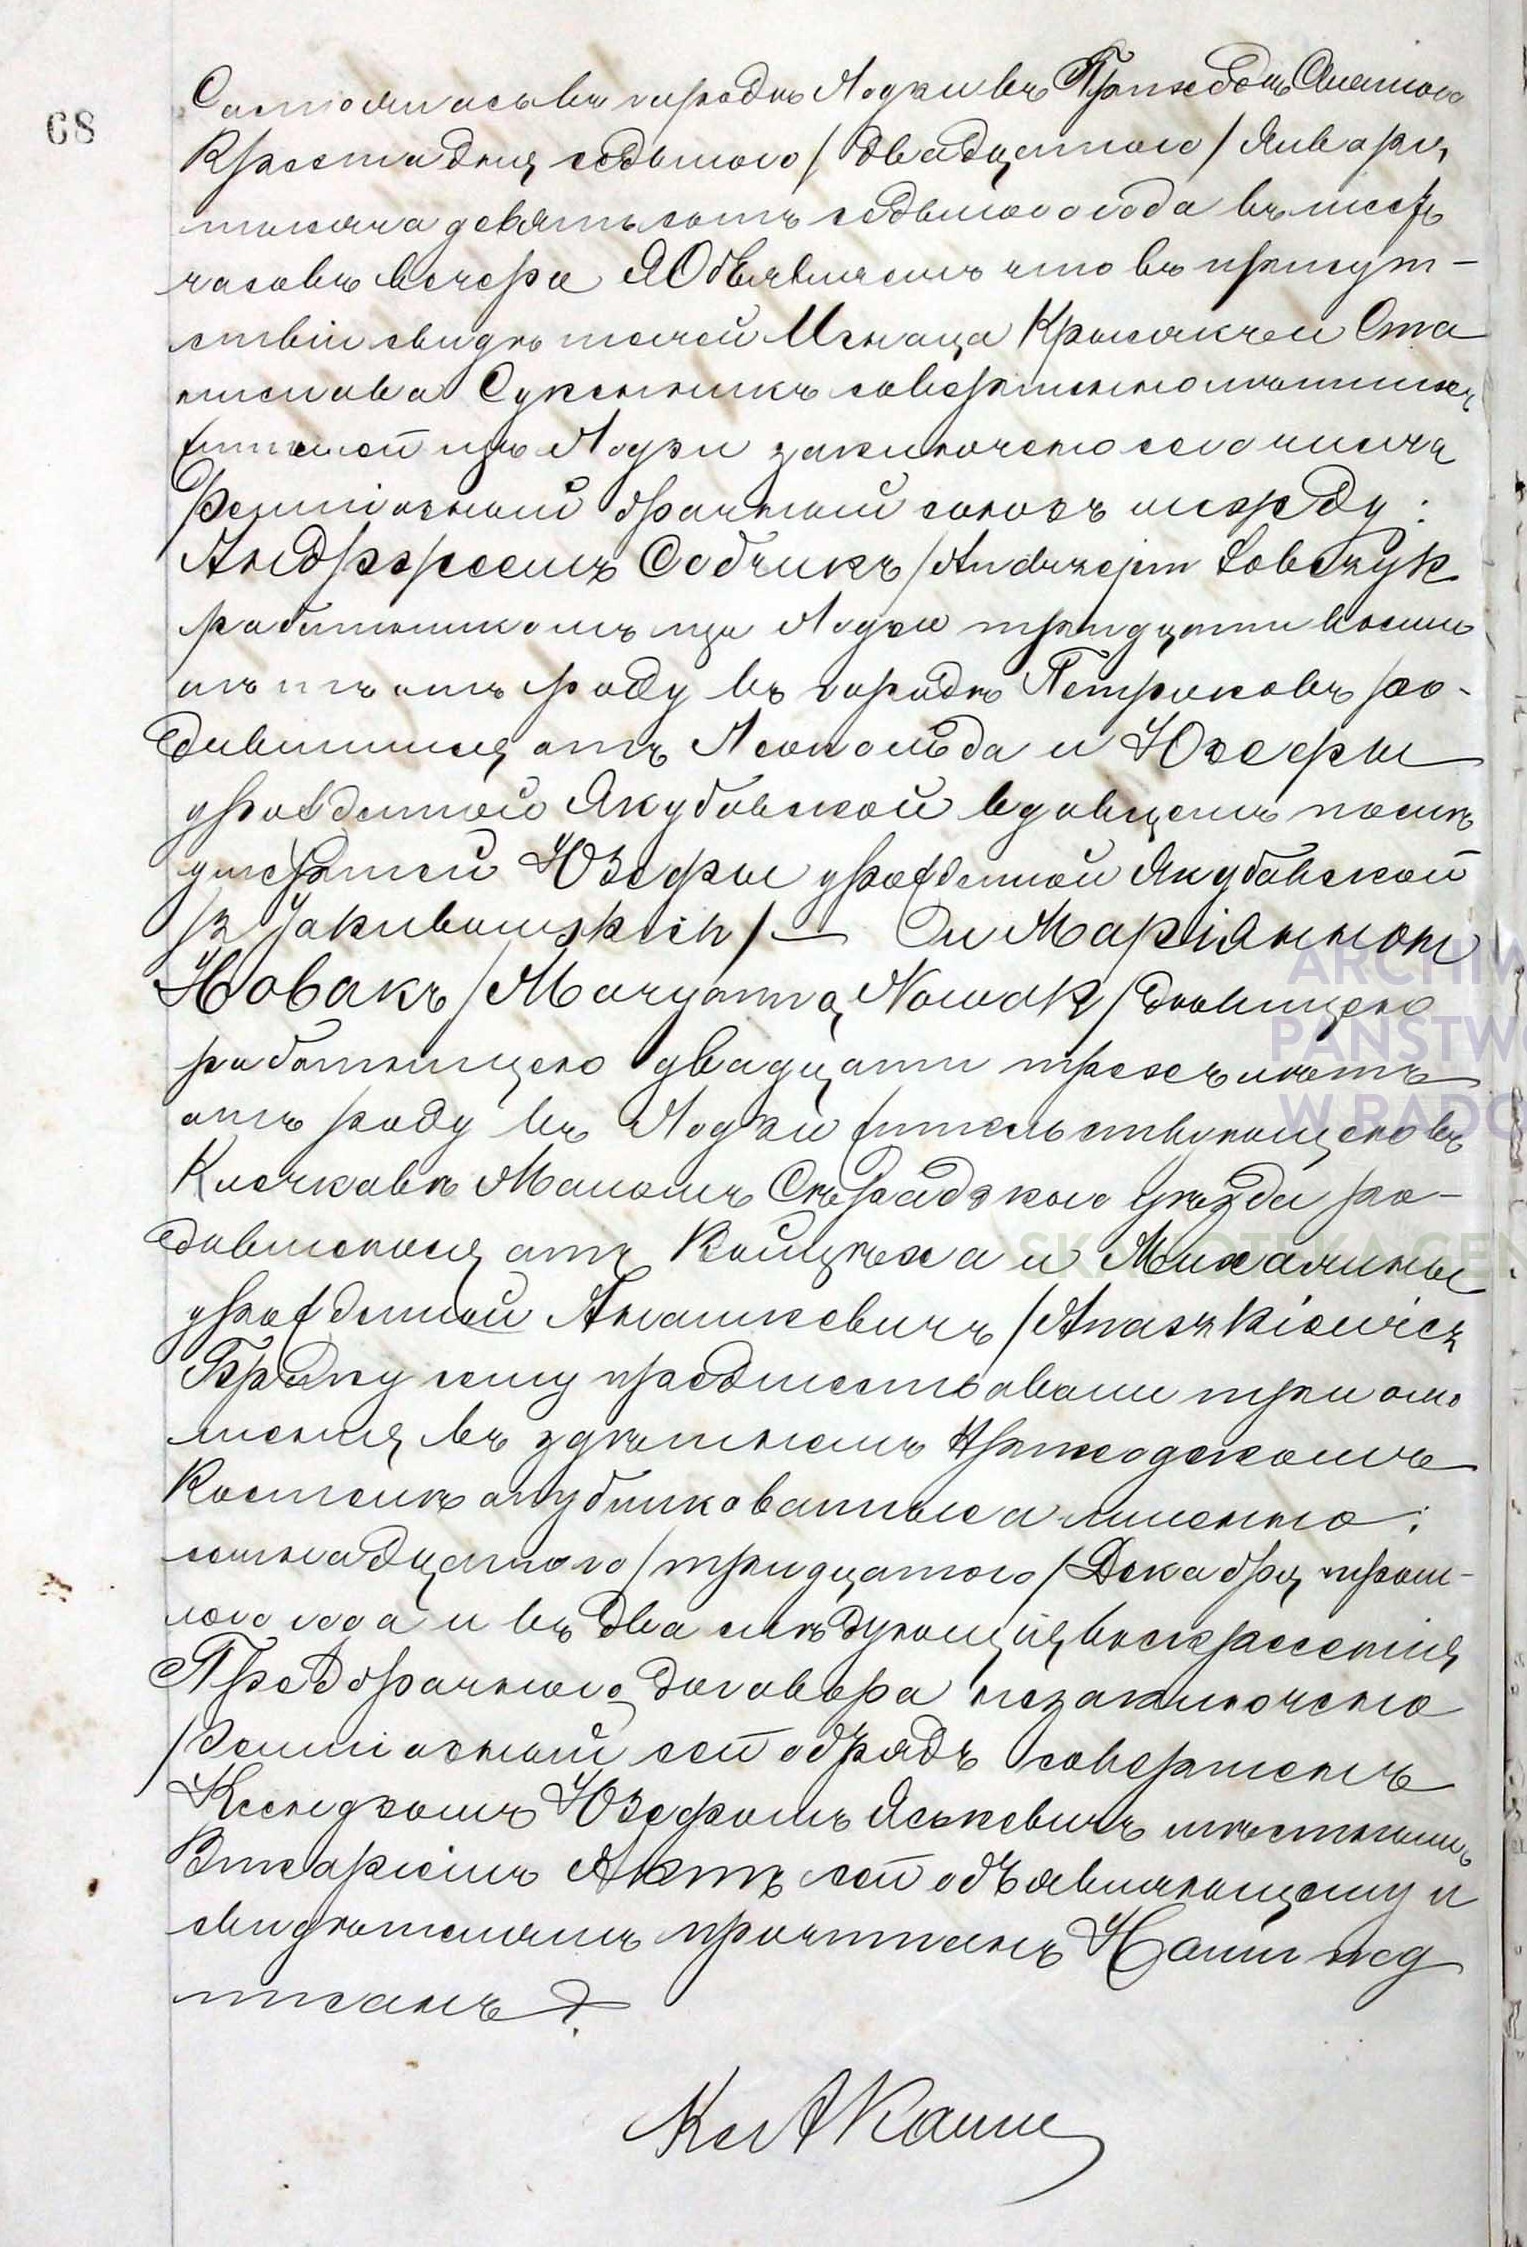 68
Состоялось въ городѣ Лодзи въ Приходѣ Святого
Креста дня седьмого / двадцатого / Января
тысяча девятьсотъ седьмого года въ шесть
часовъ вечера Объявляемъ что въ присут-
ствіи свидѣтелей Игнаца Крысяка и Ста
нислава Сукенникъ совершеннолѣтнихъ
жителей изъ Лодзи заключено сего числа
Религіозный брачный союзъ между:
Андржеемъ Собчикъ / Andrzejem Sobczyk
работникомъ изъ Лодзи тридцати восьми
лѣтъ отъ роду въ городѣ Петроковѣ ро-
дившимся отъ Леопольда и Юзефы
урожденной Якубовской вдовцемъ послѣ
умершей Юзефы урожденной Якубовской
/z Jakubowskich/ — и Маріянною
Новакъ / Maryanną Nowak / дѣвицею
работницею двадцати трехъ лѣтъ
отъ роду въ Лодзи жительствующею въ
Клочковѣ Маломъ Сѣрадзкого уѣзда ро-
дившеюся отъ Войцѣха и Михалины
урожденной Анашкевичъ / Anaszkiewicz
Браку сему предшествовали три огла
шенія въ здѣшнемъ Приходскомъ
Костелѣ опубликованныя а именно:
семнадцатого / тридцатого / Декабря прош-
лого года и въ два слѣдующія воскресенія
Предбрачного договора незаключено
Религіозный сей обрядъ совершенъ
Ксендзомъ Юзефомъ Яськевичъ мѣстнымъ
Викаріемъ Актъ сей объявляющему и
свидѣтелямъ прочитанъ Нами под
писанъ.
Кс А
ARCHIW
PAŃSTWO
W RADO
SKANOTEKA GEN